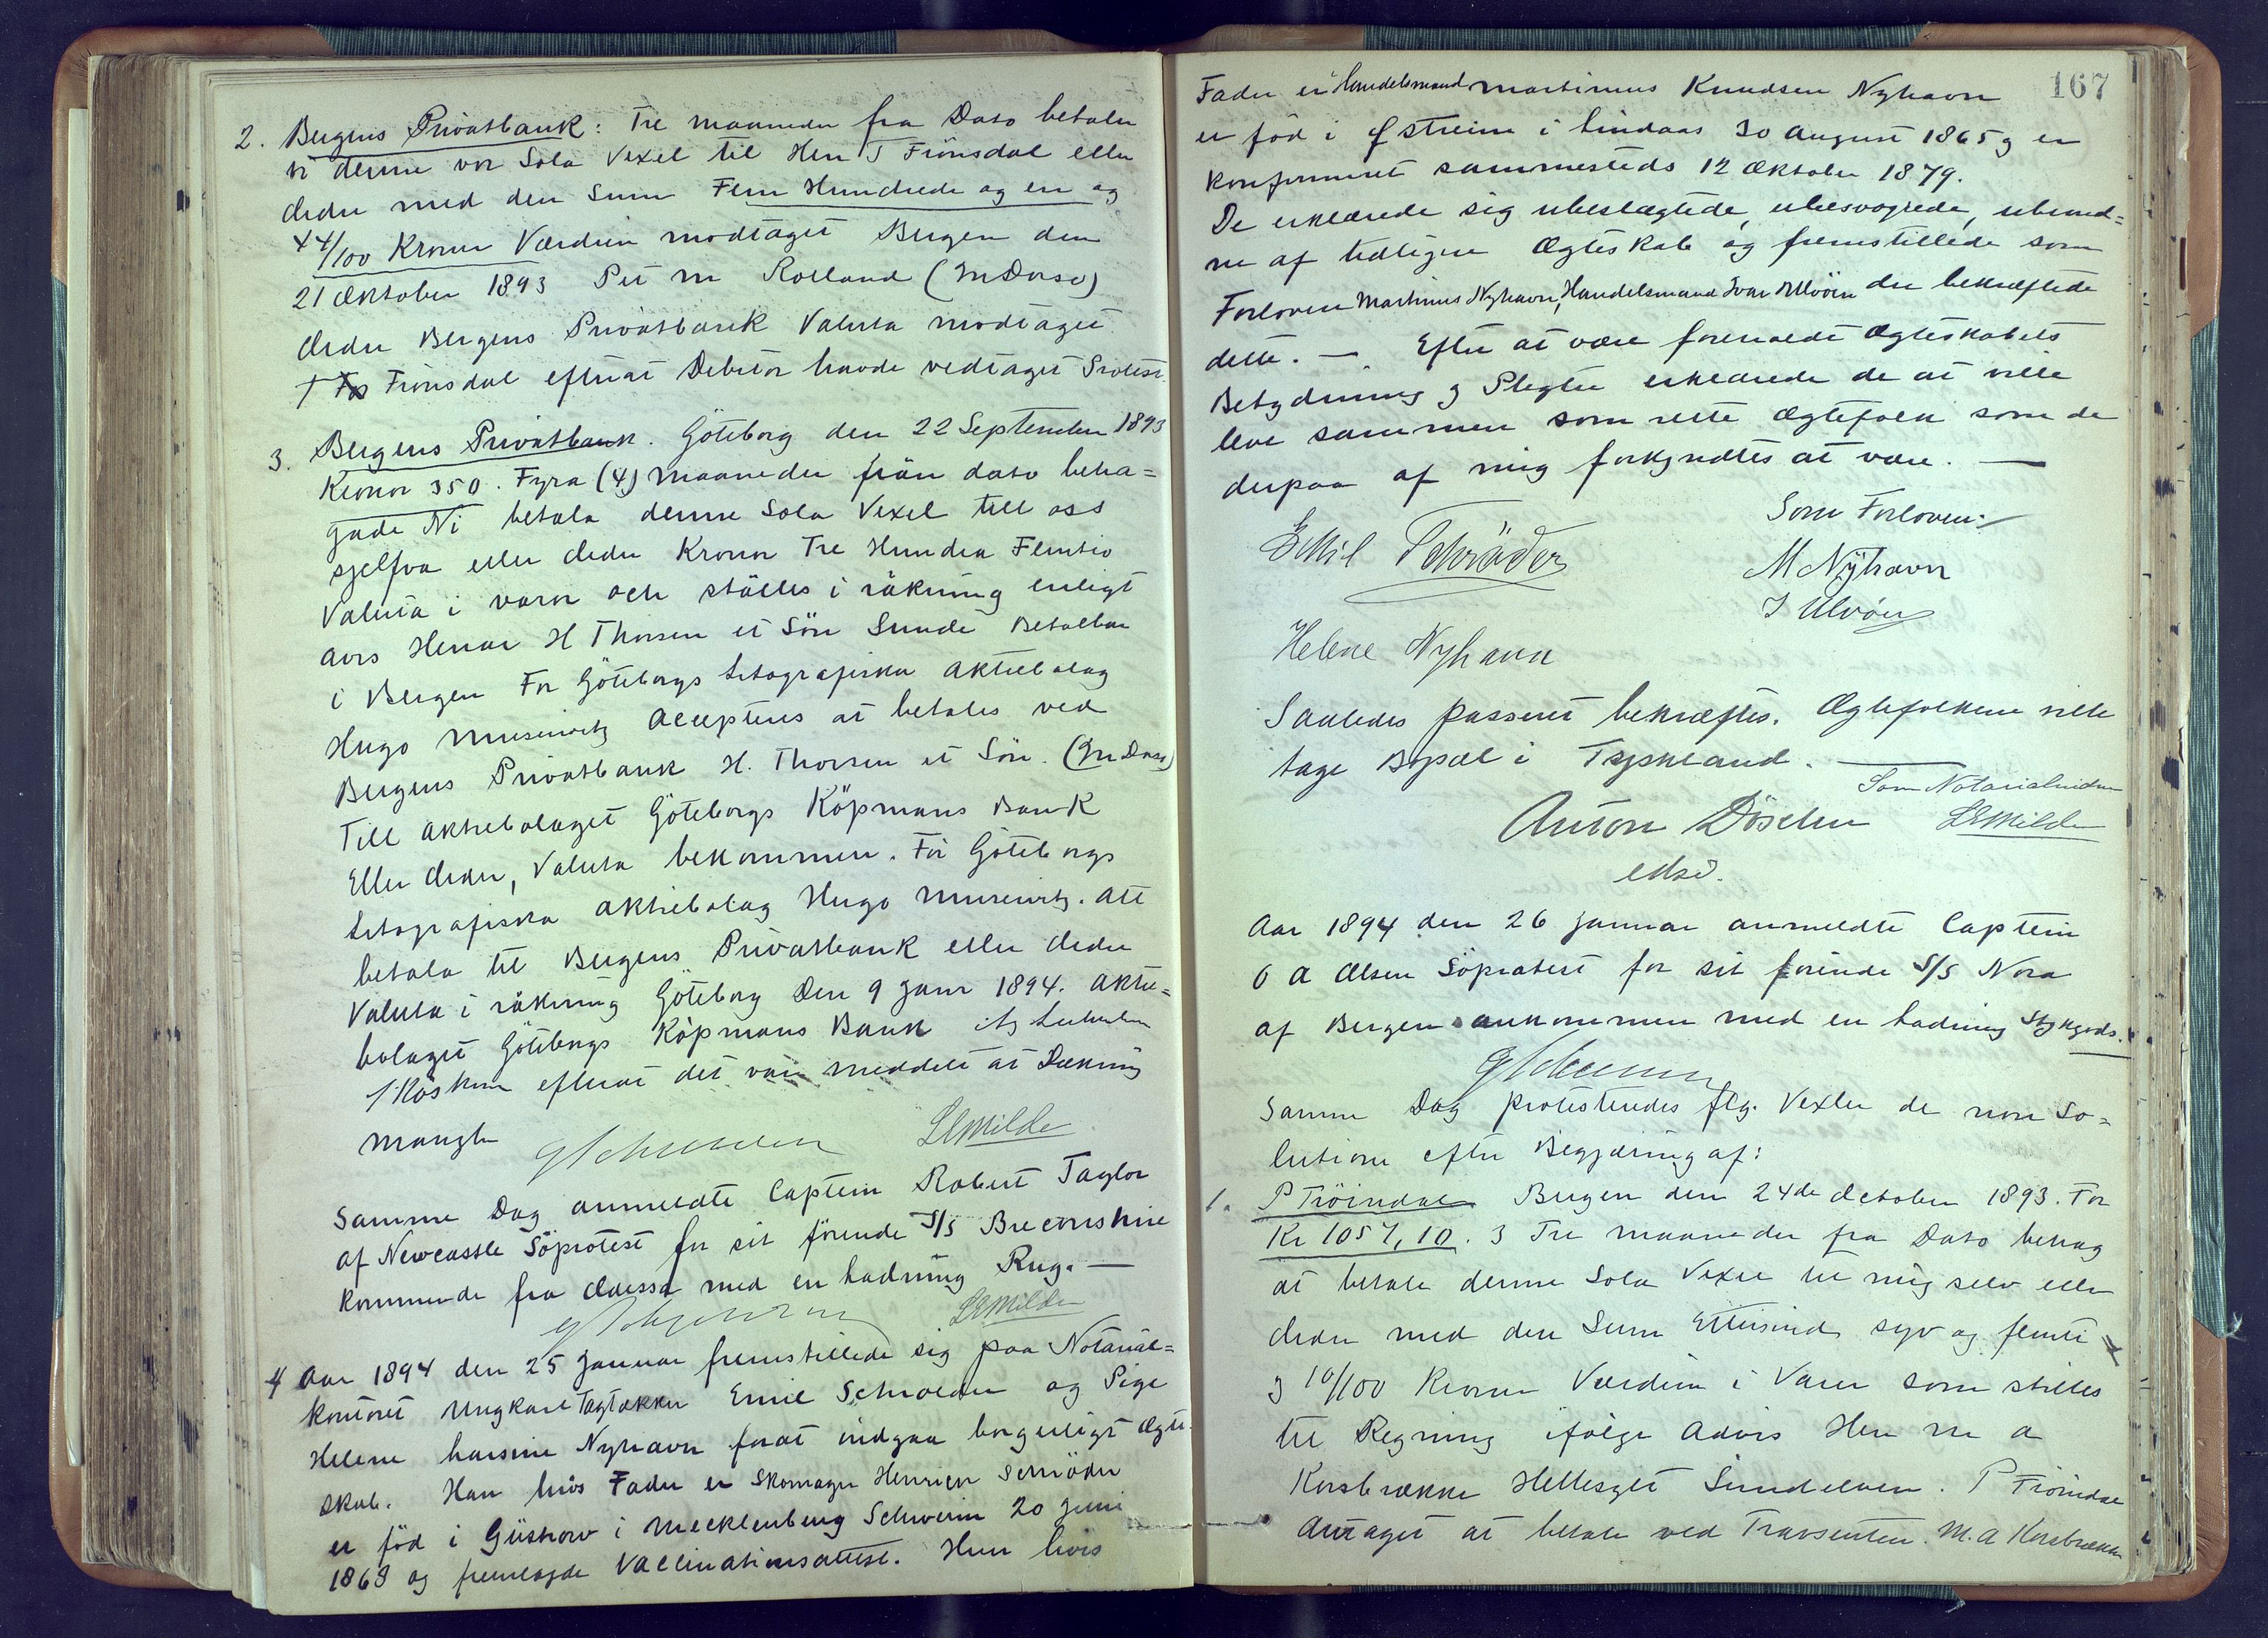 2. Bergens Privatbank: Tre Maaneder fra Dato betaler
vi denne vor Sola Vexel til Herr T Frönsdal eller
Ordre med den Sum Fem Hundrede og en og
44/100 Kroner Værdien modtaget Bergen den
21 Oktober 1893 Per M Rolland (In Dorso)
Ordre Bergens Privatbank Valuta modtaget.
T Frönsdal efterat Debitor havde vedtaget Protest.
3. Bergens Privatbank. Göteborg den 22 September 1893
Kronor 350. Fyra (4) Maaneder från dato beha=
gade Ni betala denne Sola Vexel till oss
sjelfva eller Order Kronor Tre Hundra Femtio
Valuta i varor och ställes i räkning enligt
avis Herrar H Thorsen et Sön Sunde Betalbar
i Bergen For Göteborgs Litografiska Aktiebolag
Hugo Musiewitz Accepteres at betales ved
Bergens Privatbank H. Thorsen et Sön. (In Dorso)
Till Aktiebolaget Göteborgs Köpmans Bank
Eller Order, Valuta bekommen. För Göteborgs
Litografiska Aktiebolag Hugo Musiewitz. Att
betala til Bergens Privatbank eller Order
Valuta i räkning Göteborg Den 9 Janr 1894. Aktie=
bolaget Göteborgs Köpmans Bank
efterat det var meddelt at Dækning
mangler LEMilde
Samme Dag anmeldte Captein Robert Taylor
af Newcastle Söprotest for sit förende S/S Breconshire
kommende fra Odessa med en Ladning Rug. —
LEMilde
4 Aar 1894 den 25 Januar fremstillede sig paa Notarial=
kontoret Ungkarl Tagtækker Emil Schröder og Pige
Helene Larsine Nyhavn forat indgaa borgerligt Ægte
skab. Han hvis Fader er Skomager Henrich Schröder
er föd i Güstrow i Mecklenburg Schwerin 20 Juni
1868 og fremlagde Vaccinationsattest. Hun hvis
167
Fader er Handelsmand Martinus Knudsen Nyhavn
er föd i Østreim i Lindaas 30 August 1865 og er
konfirmeret sammesteds 12 Oktober 1879.
De erklærede sig ubeslægtede, ubesvogrede, ubund=
ne af tidligere Ægteskab og fremstillede som
Forlovere Martinus Nyhavn, Handelsmand Ivar Ulvöen der bekræftede
dette. — Efter at være foreholdt Ægteskabets
Betydning og Pligter erklærede de at ville
leve sammen som rette Ægtefolk som de
derpaa af mig forkyndtes at være. —
Som Forlovere:
Emil Schröder
M Nyhavn
I Ulvöen
Helene Nyhavn
Saaledes passeret bekræftes. Ægtefolkene ville
tage Bopæl i Tyskland. —
Som Notarialvidne
Anton Döscher LEMilde
edsv.
Aar 1894 den 26 Januar anmeldte Captein
O A Olsen Söprotest for sit förende S/S Nora
af Bergen ankommen med en Ladning Stykgods.
Samme Dag protesteredes flg. Vexler de non So=
lutione efter Begjæring af:
1. P Tröindal Bergen den 24de October 1893. For
Kr 1057,10. 3 Tre Maaneder fra Dato behag
at betale denne Sola Vexel til mig selv eller
Ordre med den Sum Ettusind syv og femti
og 10/100 Kroner Værdien i Varer som stilles
til Regning ifölge Advis Herr M A
Korsbrække Hellesylt Söndelven. P Tröindal
Antaget at betale ved Trassenten. M. A Korsbrække